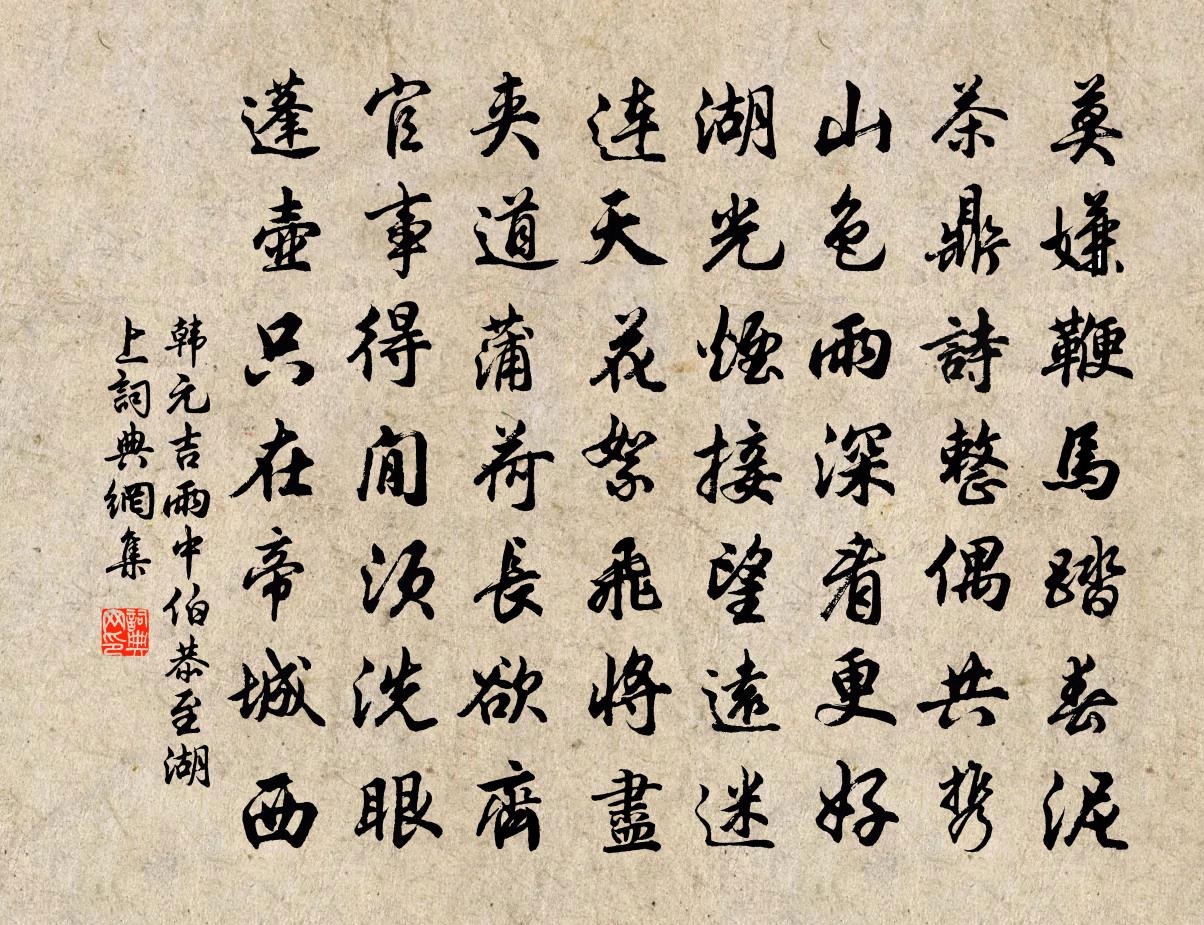 莫嫌鞭馬踏春泥
茶鼎詩囊偶共携
山色雨深看更好
湖光煙接望遠迷
連天花絮飛將盡
夾道蒲荷長欲齊
官事得閒須洗眼
蓬壺只在帝城西
韩元吉雨中伯恭至湖
上詞典網集
詞典
网印